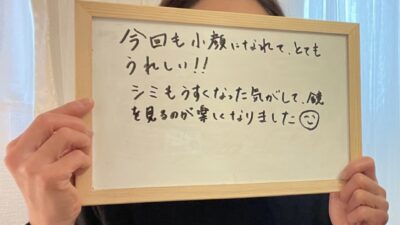 今回も小顔になれて、とても
うれしい!!
シミもうすくなった気がして、鏡
を見るのが楽しくなりました☺